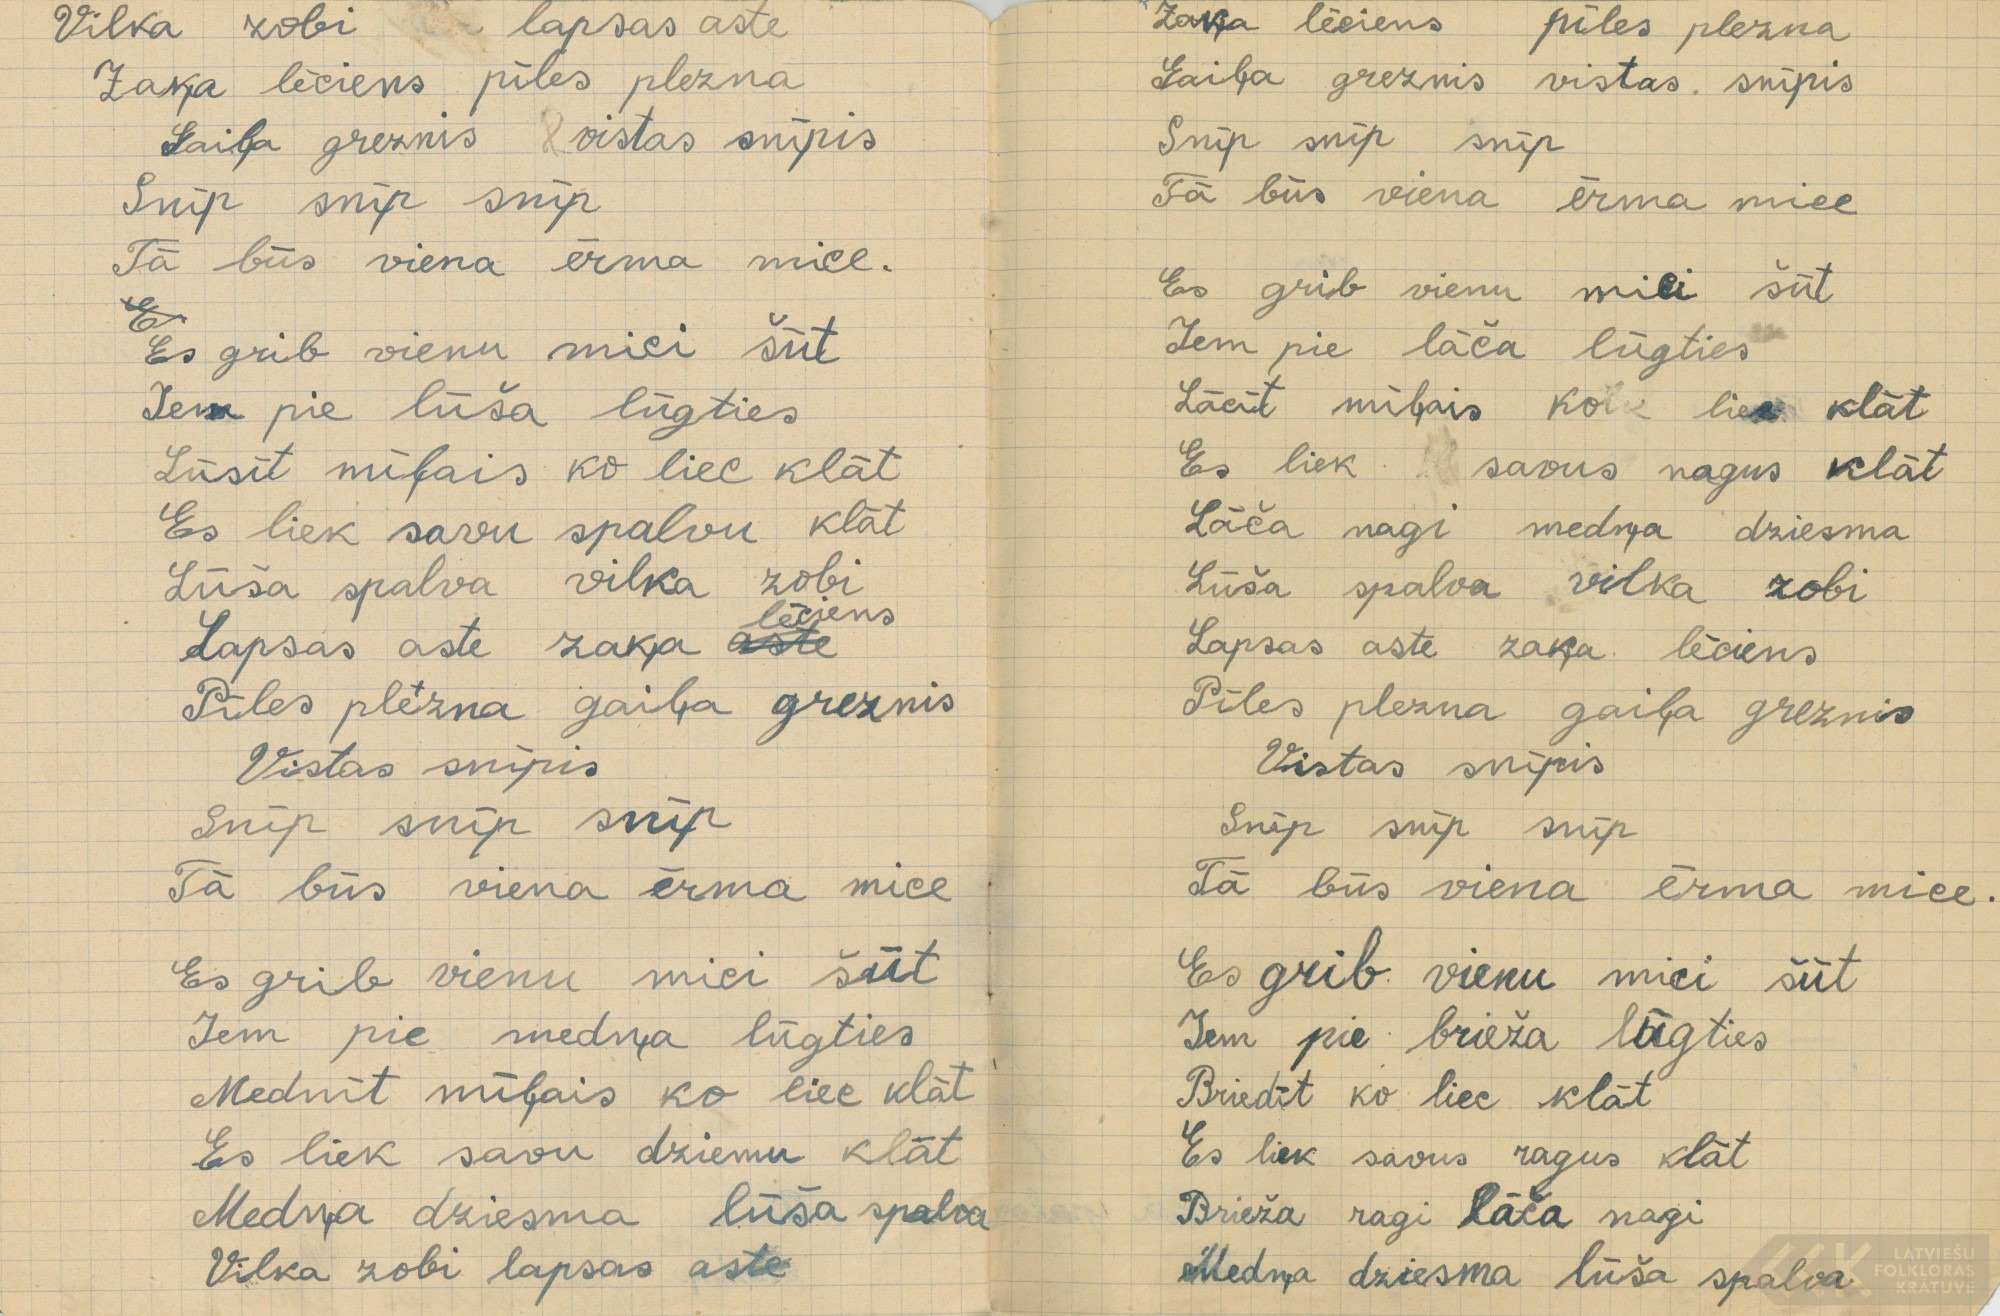 Vilka zobi lapsas aste
Zaķa lēciens pīles plezna
Gaiļa greznis vistas snīpis
Snīp snīp snīp
Tā būs viena ērma mice.
E
Es grib vienu mici šūt
Iem pie lūša lūgties
Lūsīt mīļais ko liec klāt
Es liek savu spalvu klāt
Lūša spalva vilka zobi
lēciens
Lapsas aste zaķa aste
Pīles plezna gaiļa greznis
Vistas snīpis
Snīp snīp snīp
Tā būs viena ērma mice
Es grib vienu mici šūt
Iem pie medņa lūgties
Mednīt mīļais ko liec klāt
Es liek savu dziemu klāt
Medņa dziesma lūša spalva
Vilka zobi lapsas aste
Zaķa lēciens pīles plezna
Gaiļa greznis vistas snīpis
Snīp snīp snīp
Tā būs viena ērma mice
Es grib vienu mici šūt
Iem pie lāča lūgties
Lācīt mīļais ko liec klāt
Es liek savus nagus klāt
Lāča nagi medņa dziesma
Lūša spalva vilka zobi
Lapsas aste zaķa lēciens
Pīles plezna gaiļa greznis
Vistas snīpis
Snīp snīp snīp
Tā būs viena ērma mice.
Es grib vienu mici šūt
Iem pie brieža lūgties
Briedīt ko liec klāt
Es liek savus ragus klāt
Brieža ragi lāča nagi
Medņa dziesma lūša spalva
LATVIEŠU
FOLKLORAS
KRĀTUVE